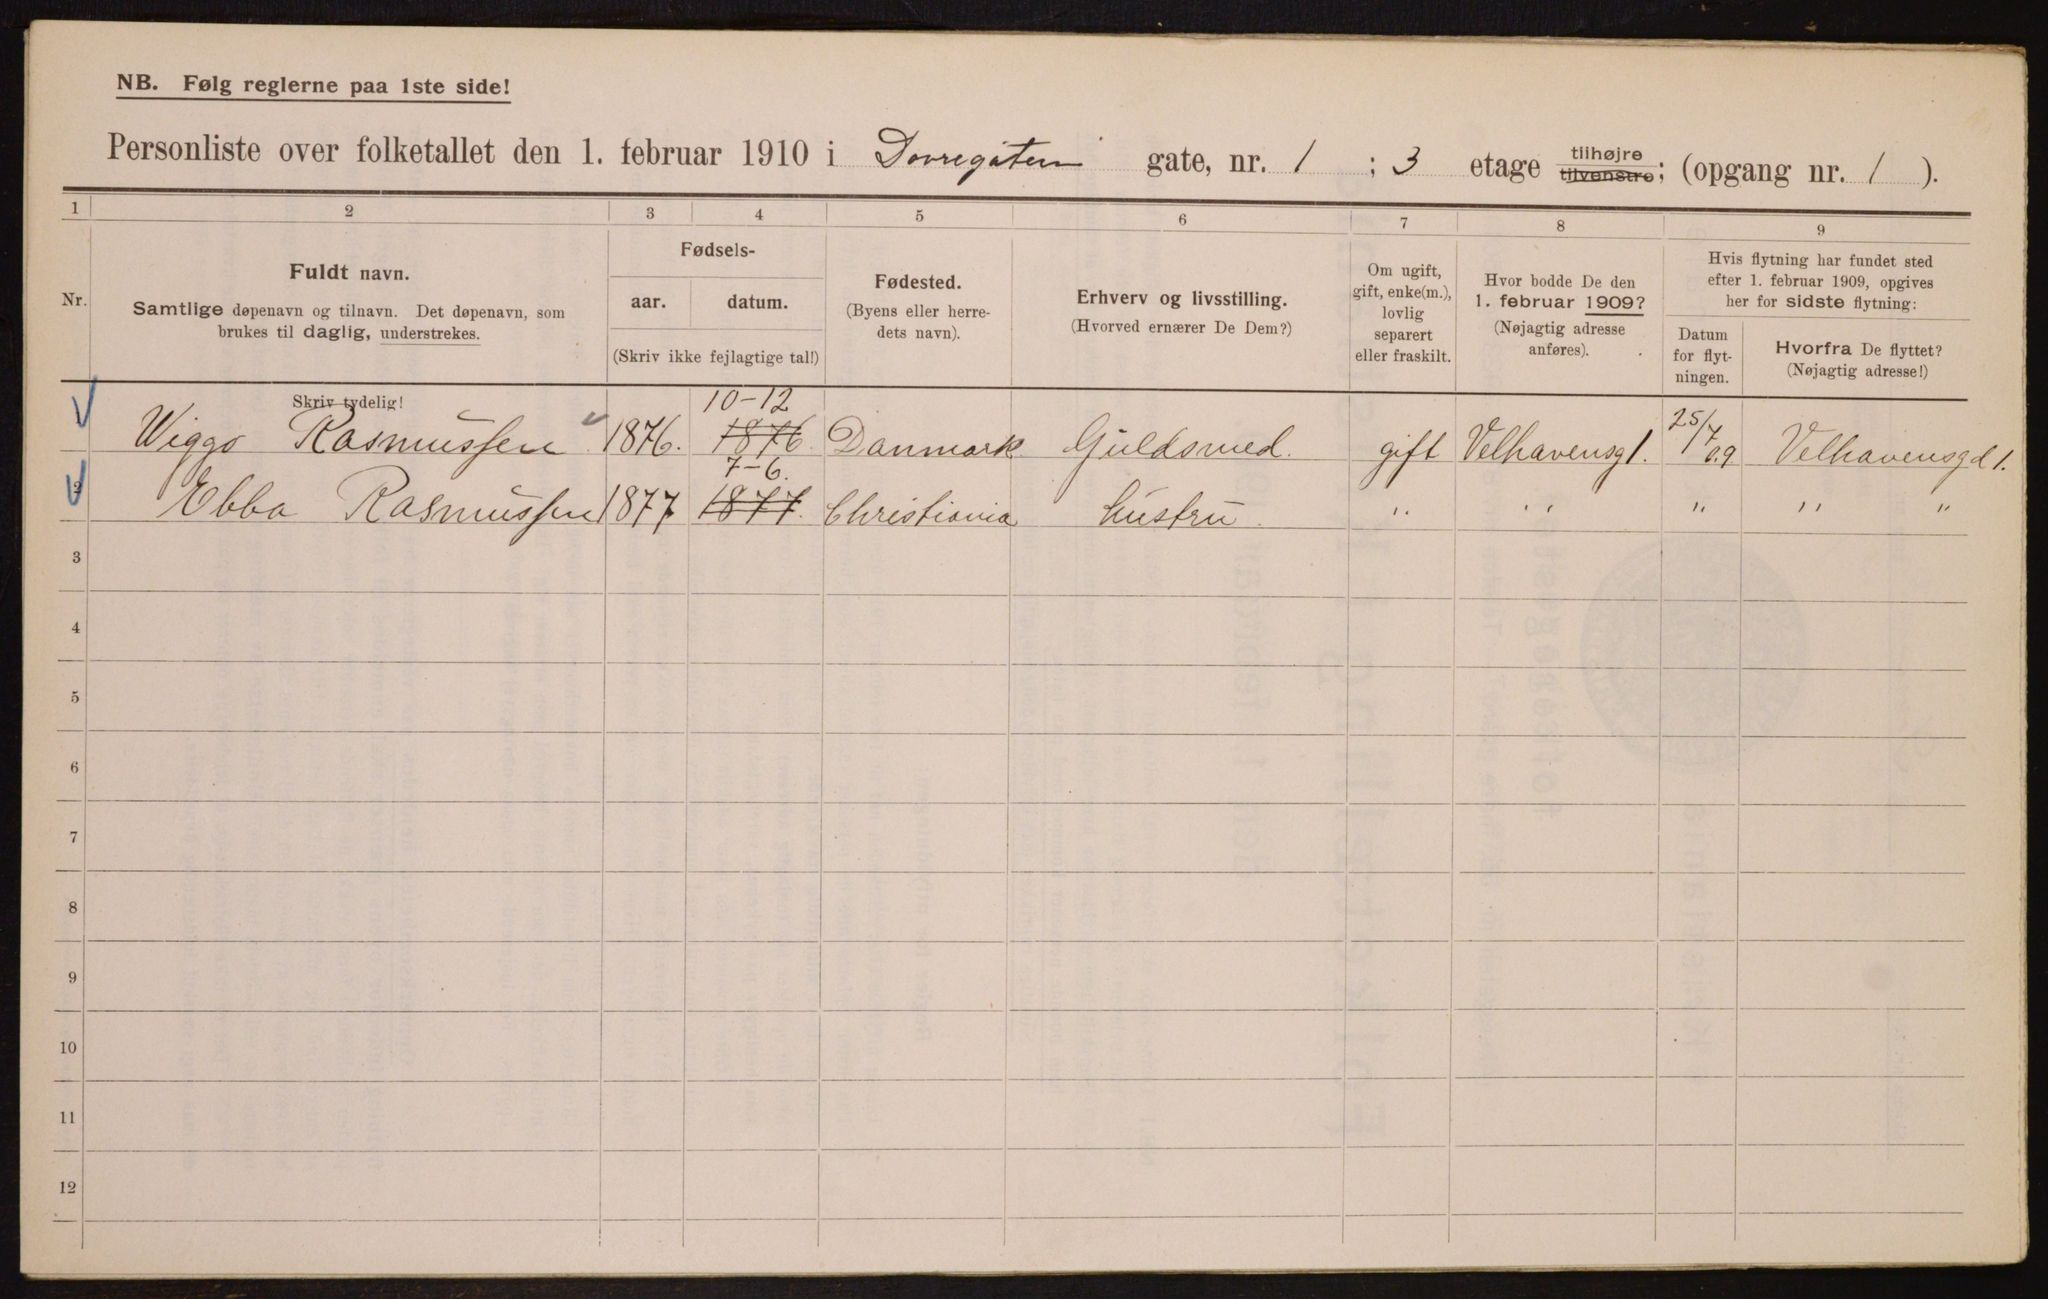 NB. Følg reglerne paa 1ste side!
Personliste over folketallet den 1. februar 1910 i Dovregaten gate, nr. 1 ; 3 etage tilhøjre tilvenstre; (opgang nr. 1 ).
1 2 3 4 5 6 7 8 9
Nr.
Fuldt navn.
Samtlige døpenavn og tilnavn. Det døpenavn, som
brukes til daglig, understrekes.
Skriv tydelig!
Fødsels-
aar. datum.
(Skriv ikke fejlagtige tal!)
Fødested.
(Byens eller herre-
dets navn).
Erhverv og livsstilling.
(Hvorved ernærer De Dem?)
Om ugift,
gift, enke(m.),
lovlig
separert
eller fraskilt.
Hvor bodde De den
1. februar 1909?
(Nøjagtig adresse
anføres).
Hvis flytning har fundet sted
efter 1. februar 1909, opgives
her for sidste flytning:
Datum
for flyt-
ningen.
Hvorfra De flyttet?
(Nøjagtig adresse!)
10-12
Wiggo Rasmussen 1876. 1876. Danmark Guldsmed. gift Velhavensg 1. 25/7 09 Velhavensgd 1.
7-6.
2 Ebba Rasmussen 1877 1877. Christiania hustru. " " " " "
3
4
5
6
7
8
9
10
11
12